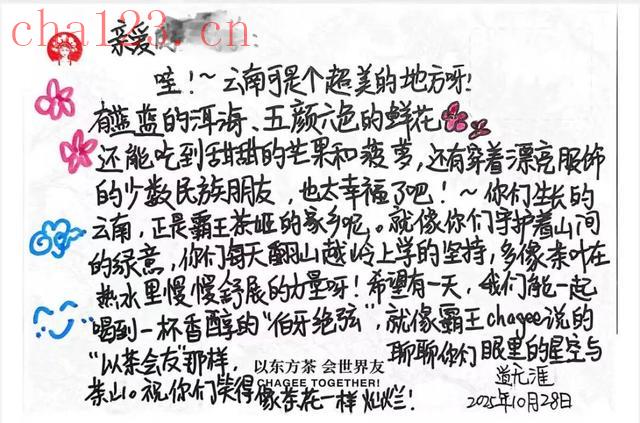 cha123.cn
亲爱的
哇!~云南可是个超美的地方呀!
有蓝蓝的洱海、五颜六色的鲜花
还能吃到甜甜的芒果和菠萝,还有穿着漂亮服饰
的少数民族朋友,也太幸福了吧!~你们生长的
云南,正是霸王茶姬的家乡呢。就像你们守护着山间
的绿意,你们每天翻山越岭上学的坚持,多像茶叶在
热水里慢慢舒展的力量呀!希望有一天,我们能一起
喝到一杯香醇的“伯牙绝弦”,就像霸王chagee说的
“以茶会友”那样,聊聊你们眼里的星空与
以东方茶 会世界友
CHAGEE TOGETHER!
茶山。祝你们笑得像茶花一样灿烂!
2025年10月28日